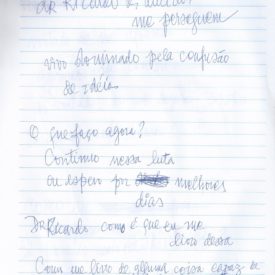 DR Ricardo
me perseguem
vivo dominado pela confusão
de idéias
O que faço agora?
Continuo nessa luta
ou espero por melhores
dias
Dr Ricardo como é que eu me
livro dessa
Como me livro de alguma coisa capaz de